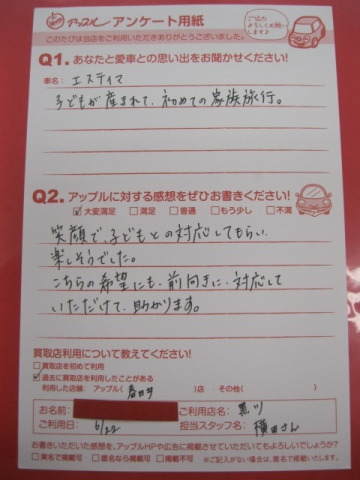 アップル アンケート用紙
このたびは当店をご利用いただきありがとうございました。
ご協力
よろしくお願い
します♪
Q1. あなたと愛車との思い出をお聞かせください!
車名: エスティマ
子どもが産まれて、初めての家族旅行。
Q2. アップルに対する感想をぜひお書きください!
☑大変満足 □満足 □普通 □もう少し □不満
笑顔で、子どもとの対応してもらい
楽しそうでした。
こちらの希望にも、前向きに、対応して
いただけて、助かります。
買取店利用について教えてください!
□買取店を初めて利用
☑過去に買取店を利用したことがある
利用した店舗: アップル( 春日井 )店 その他( )
お名前: ご利用店名: 黒川
ご利用日: 6/22 担当スタッフ名: 横田さん
お書きいただいた感想を、アップルHPや広告に掲載させていただいてもよろしいでしょうか?
□実名で掲載可 □匿名なら掲載可 □掲載不可 ※ご記入がない場合は、匿名で掲載いたします。